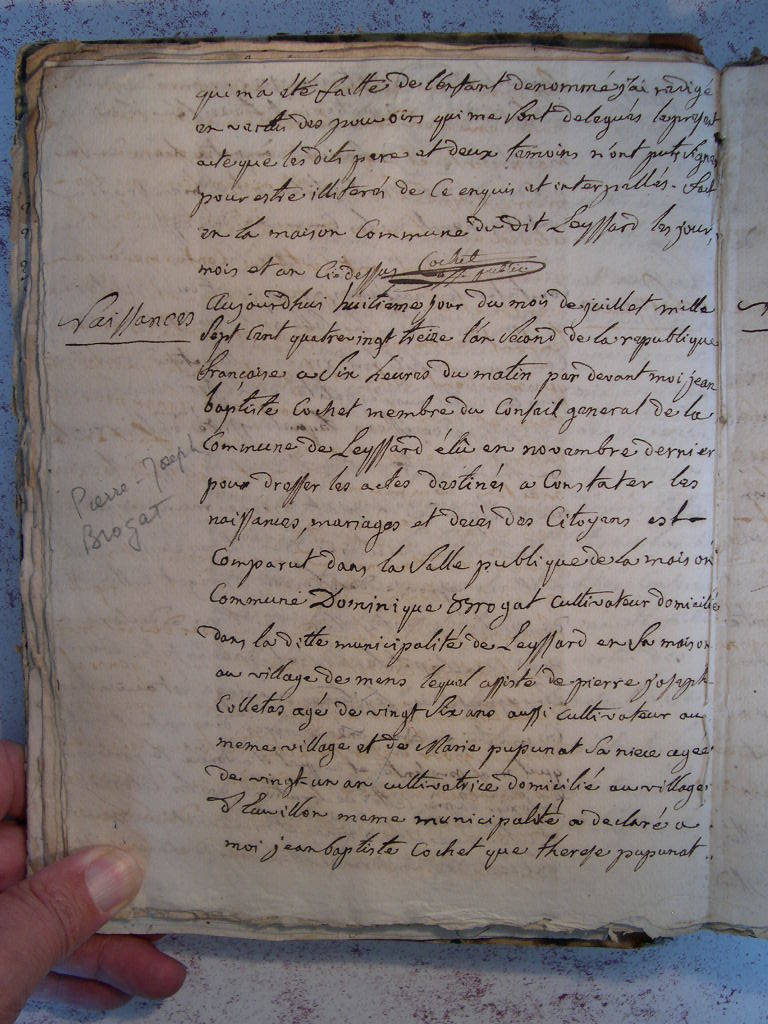 qui m'a été faitte de l'enfant denommé j'ai redigé
en vertu des pouvoirs qui me sont delegués le present
acte que les dits pere et deux temoins n'ont put signer
pour estre illiterés de ce enquis et interpallés. Fait
en la maison Commune du dit Leyssard les jour,
mois et an Ci-dessus Cochet off. public
Naissances
Aujourdhui huitieme jour du mois de juillet mille
Sept Cent quatrevingt treize l'an Second de la republique
francaise a Six heures du matin par devant moi jean
baptiste Cochet membre du Conseil general de la
Commune de Leyssard élû en novambre dernier
pour dresser les actes destinés a Constater les
naissances, mariages et decès des Citoyens est
Comparut dans la Salle publique de la maison
Commune Dominique Brogat cultivateur domicilié
Pierre-Joseph
Brogat
dans la ditte municipalité de Leyssard en Sa maison
au village de mens lequel assisté de pierre joseph
Colletas agé de vingt Six ans aussi Cultivateur au
meme village et de Marie pupunat Sa niece agee
de vingt un an cultivatrice domicilié au village
meme municipalité a declaré a
moi jean baptiste Cochet que therese pupunat